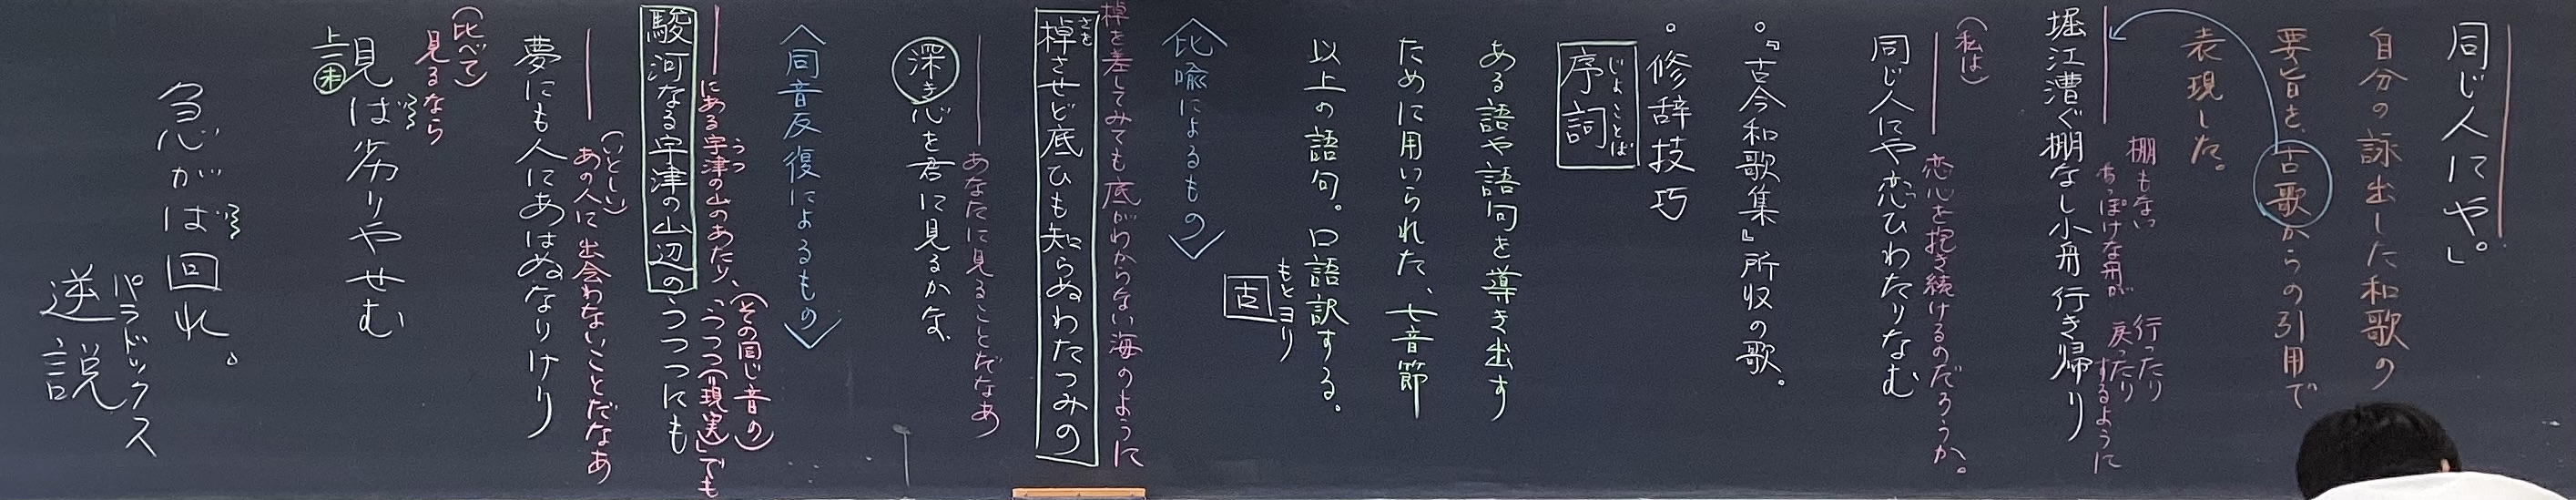 同じ人にや。」
自分の詠出した和歌の
要旨を、古歌からの引用で
表現した。
棚もない
ちっぽけな舟が
行ったり
戻ったり
するように
堀江漕ぐ棚なし小舟行き帰り
(私は)
恋心を抱き続けるのだろうか。
同じ人にや恋ひわたりなむ
。『古今和歌集』所収の歌。
。修辞技巧
じょことば
序詞
ある語や語句を導き出す
ために用いられた、七音節
以上の語句。口語訳する。
もとヨリ
固
〈比喩によるもの〉
棹を差してみても底がわからない海のように
さを
棹させど底ひも知らぬわたつみの
あなたに見ることだなあ
深き心を君に見るかな
〈同音反復によるもの〉
(その同じ音の)
うつ
にある宇津の山のあたり、うつつ(現実)でも
駿河なる宇津の山辺のうつつにも
(いとしい)
あの人に出会わないことだなあ
夢にも人にあはぬなりけり
(比べて)
見るなら
見ば劣りやせむ
上一㊍
急がば回れ。
パラドックス
逆説